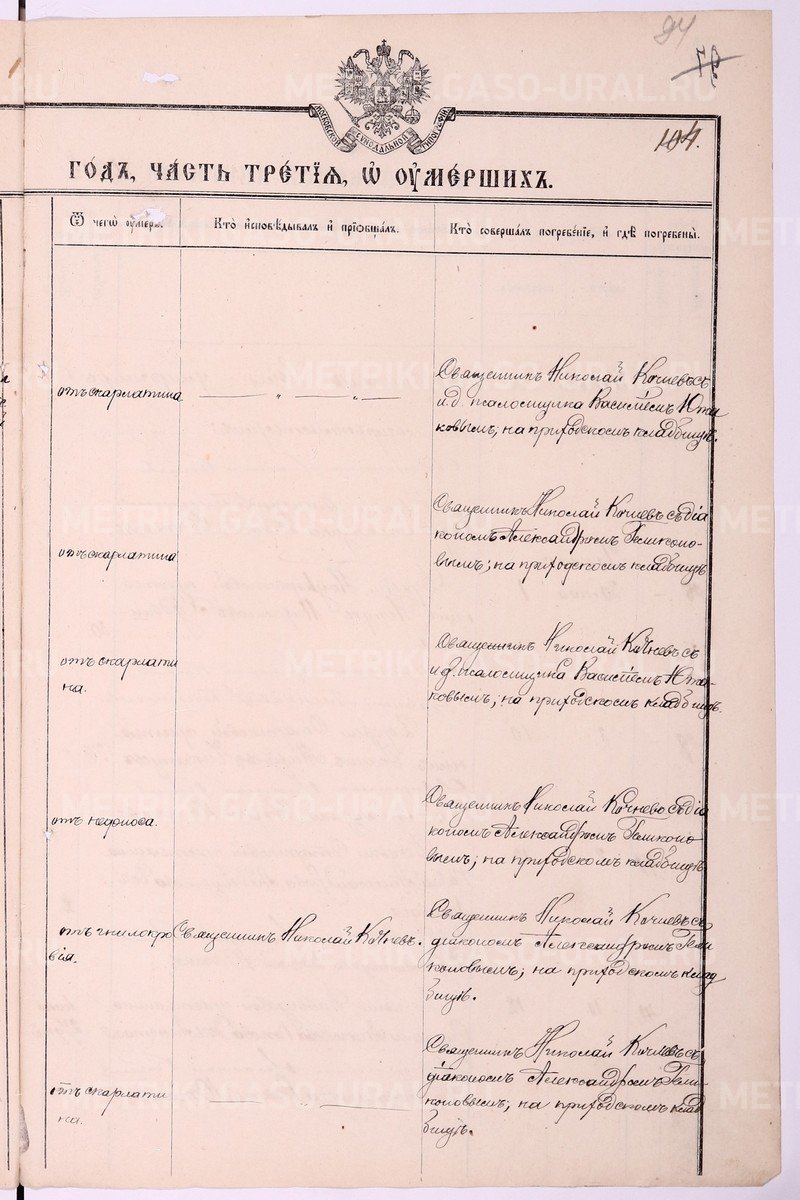 94
97
104.
МОСКОВСКОЙ СѴНОДАЛЬНОЙ ТИПОГРАФІИ
ГОДЪ, ЧАСТЬ ТРЕТІЯ, Ѡ ОУМЕРШИХЪ.
Ѿ чегѡ оумеръ.
Кто исповѣдывалъ и прїобщалъ.
Кто совершалъ погребеніе, и гдѣ погребены.
отъ скарлатина
Священникъ Николай Кочневъ съ
и.д. псаломщика Василіемъ Юта
ковымъ; на приходскомъ кладбищѣ.
отъ скарлатина
Священникъ Николай Кочневъ съ діа
кономъ Александромъ
вымъ; на приходскомъ кладбищѣ
отъ скарлати
на.
Священникъ Николай Кочневъ съ
и.д. псаломщика Василіемъ Юта-
ковымъ; на приходскомъ кладбищѣ.
отъ нефриоза.
Священникъ Николай Кочневъ съ діа
кономъ Александромъ
вымъ; на приходскомъ кладбищѣ
отъ гнилокро
вія.
Священникъ Николай Кочневъ.
Священникъ Николай Кочневъ съ
діакономъ Александромъ
коловымъ; на приходскомъ клад
бищѣ.
отъ скарлати
на.
Священникъ Николай Кочневъ съ
діакономъ Александромъ
коловымъ; на приходскомъ клад
бищѣ.
METRIKI.GASO-URAL.RU